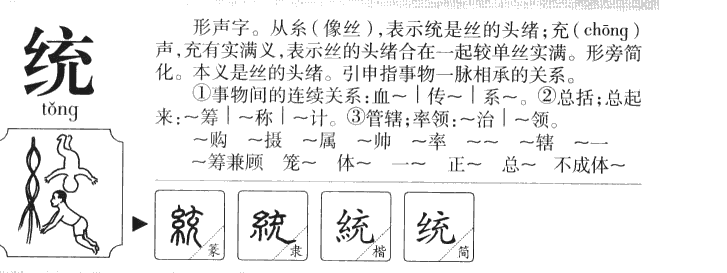 统
tǒng
形声字。从糸(像丝),表示统是丝的头绪;充(chōng)
声,充有实满义,表示丝的头绪合在一起较单丝实满。形旁简
化。本义是丝的头绪。引申指事物一脉相承的关系。
①事物间的连续关系:血~|传~|系~。②总括;总起
来:~筹|~称|~计。③管辖;率领:~治|~领。
~购 ~摄 ~属 ~帅 ~率 ~~ ~辖 ~一
~筹兼顾 笼~ 体~ 一~ 正~ 总~ 不成体~
統 篆 統 隶 統 楷 统 简